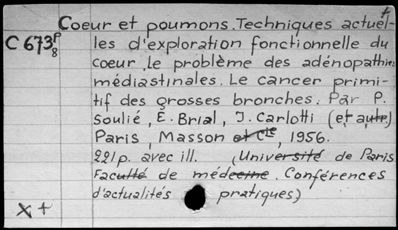 Coeur et poumons. Techniques actuel-
C 673 p/8 les d'exploration fonctionnelle du
coeur, le problème des adénopathies
médiastinales. Le cancer primi-
tif des grosses bronches. Par P.
Soulié, E. Brial, J. Carlotti (et autre)
Paris, Masson et Cie, 1956.
221p. avec ill. (Université de Paris
Faculté de médecine. Conférences
d'actualités pratiques)
X +